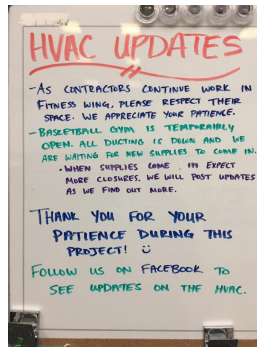 HVAC UPDATES
- AS CONTRACTORS CONTINUE WORK IN
FITNESS WING, PLEASE RESPECT THEIR
SPACE. WE APPRECIATE YOUR PATIENCE.
- BASKETBALL GYM IS TEMPORAIRLY
OPEN. ALL DUCTING IS DOWN AND WE
ARE WAITING FOR NEW SUPPLIES TO COME IN.
• WHEN SUPPLIES COME IN EXPECT
MORE CLOSURES. WE WILL POST UPDATES
AS WE FIND OUT MORE.
THANK YOU FOR YOUR
PATIENCE DURING THIS
PROJECT! ☺
FOLLOW US ON FACEBOOK TO
SEE UPDATES ON THE HVAC.